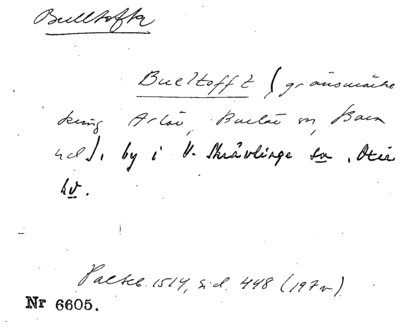 Bulltofta
Bueltofft (gränsmärke
kring Arlöv, Burlöv sn, Bara
hd), by i V. Skrävlinge sn, Oxie
hd.
Palteb. 1514, sid. 448 (197v)
Nr 6605.